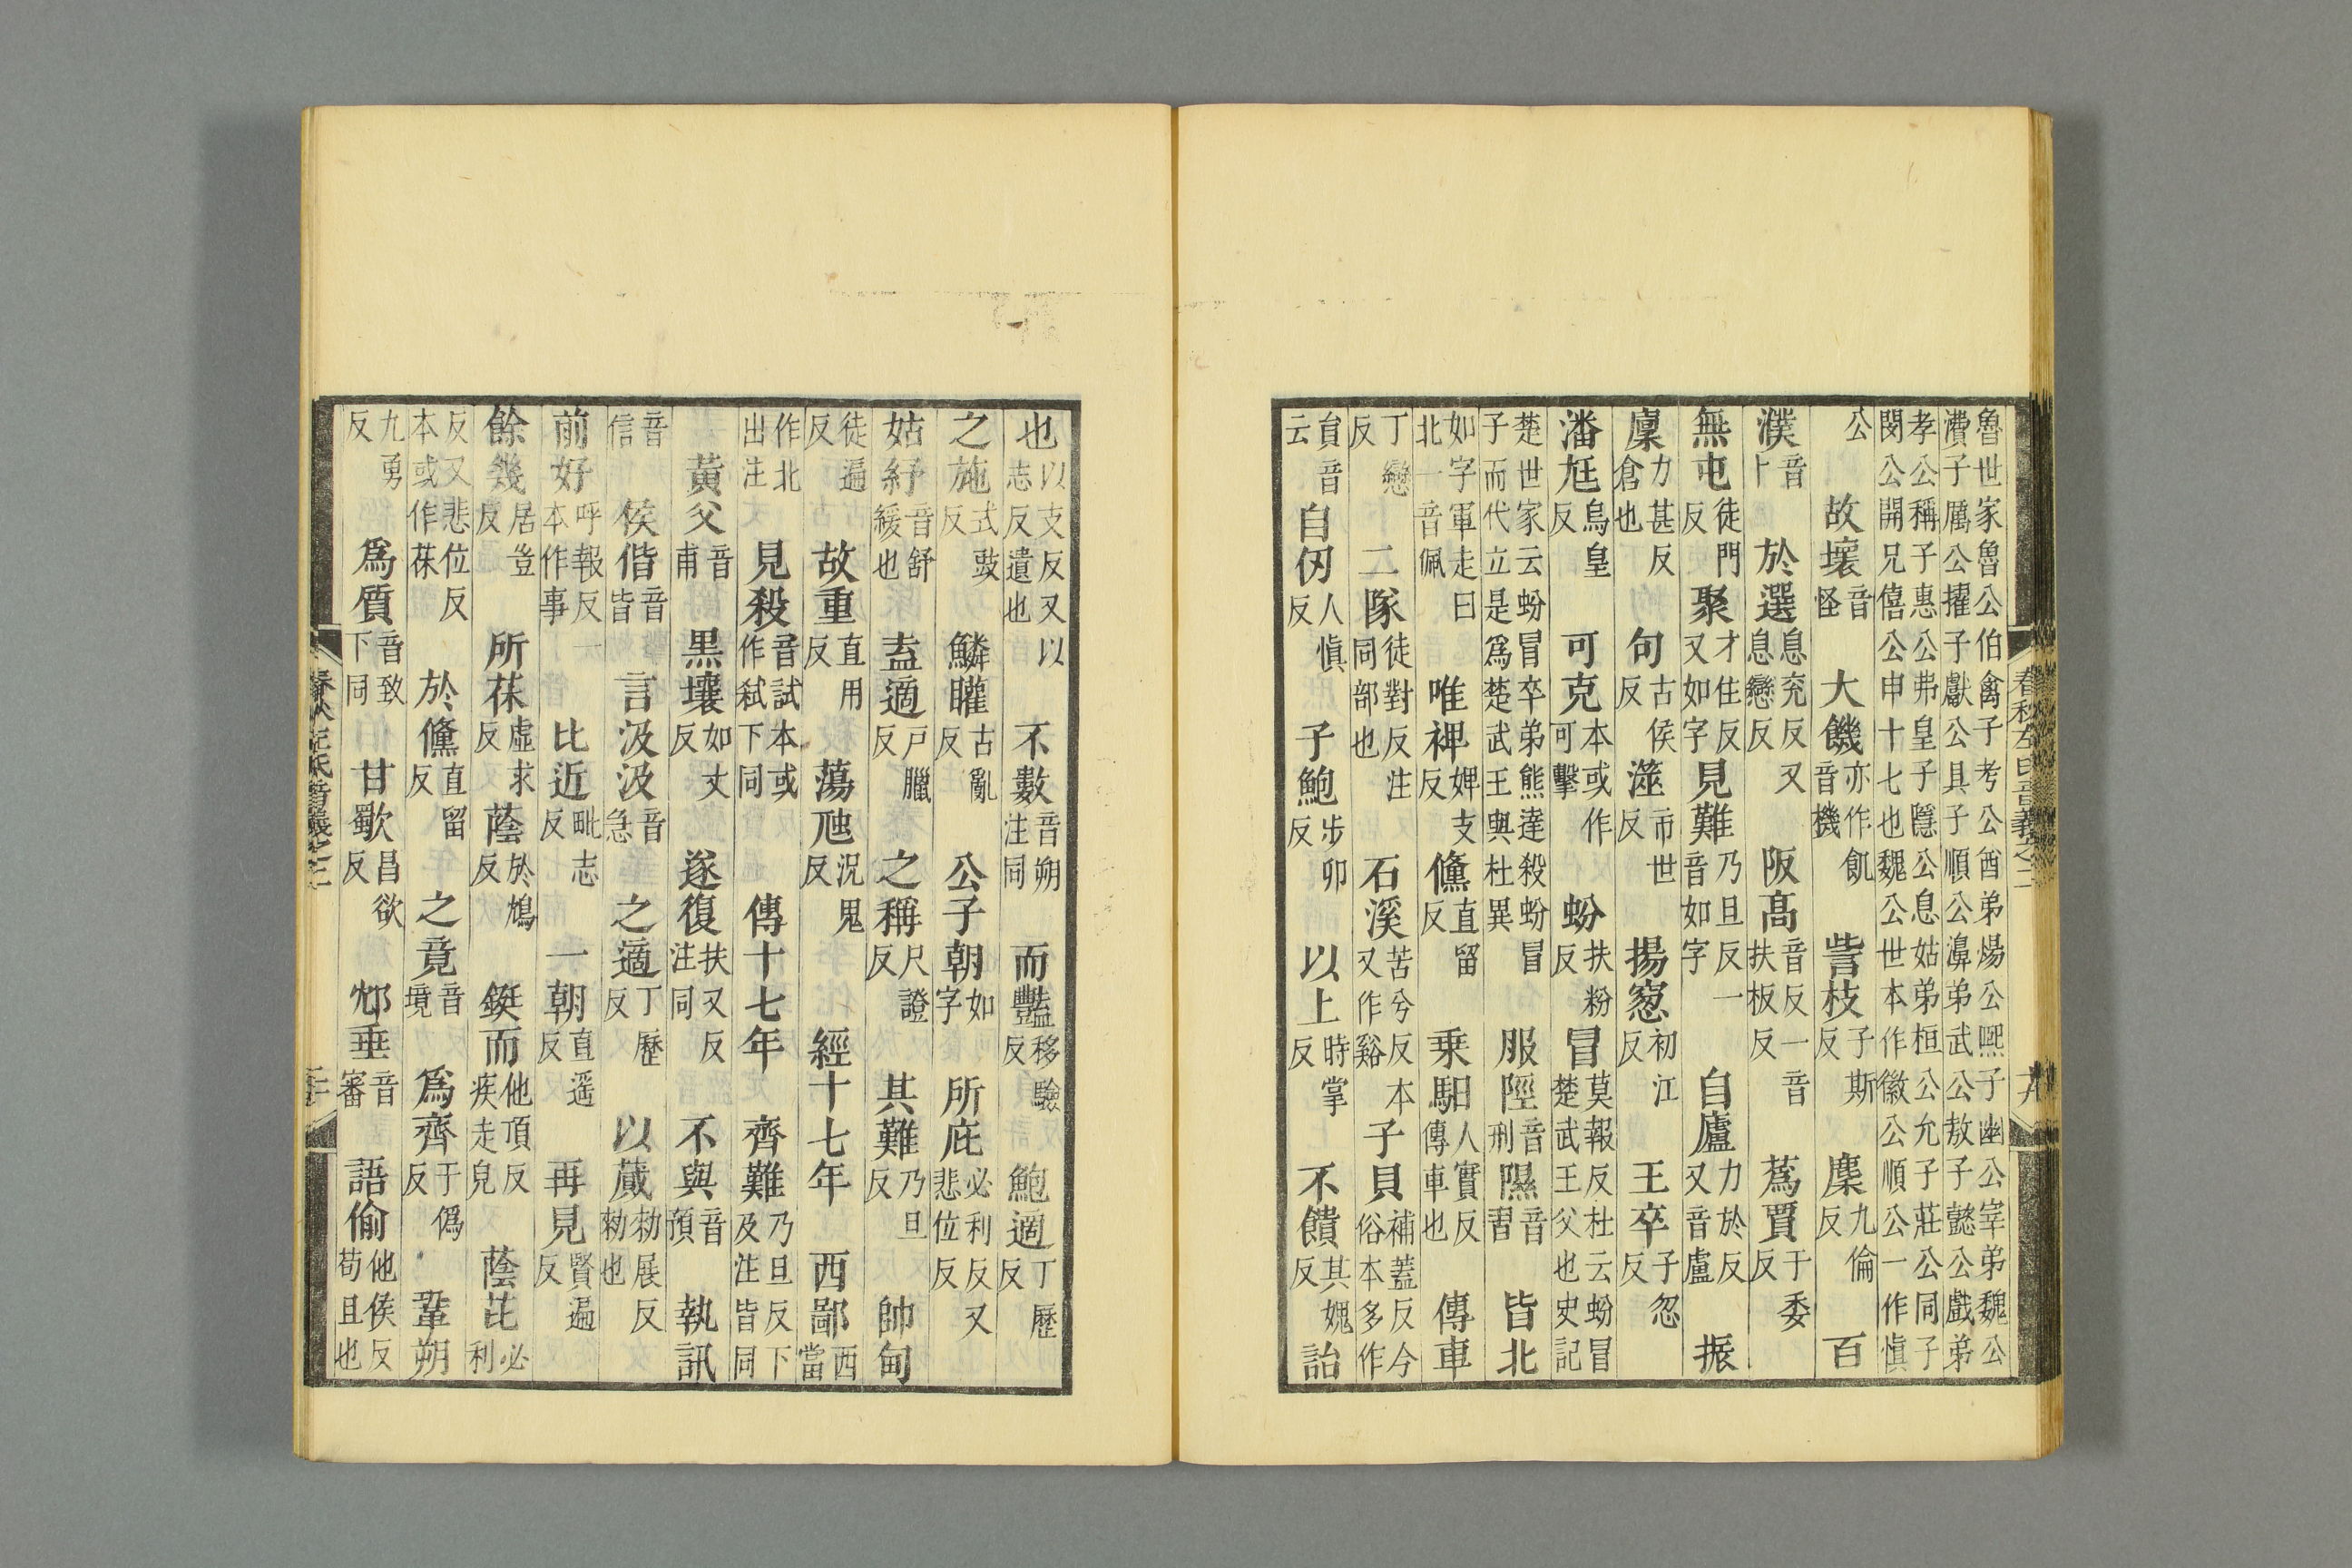 魯世家魯公伯禽子考公酋弟煬公熙子幽公宰弟魏公
㵒子厲公擢子獻公具子順公濞弟武公敖子懿公戲弟
孝公稱子惠公弗皇子隱公息姑弟桓公允子莊公同子
閔公開兄僖公申十七也魏公世本作徽公順公一作慎
公 故壞音怪 大饑亦作飢音機 訾枝子斯反 麇九倫反 百
濮音卜 於選息兖反又息戀反 阪高音反一音扶板反 蒍賈于委反
無屯徒門反 聚才住反又如字 見難乃旦反一音如字 自廬力於反又音盧 振
廩力甚反倉也 句古侯反 澨市世反 揚窓初江反 王卒子忽反
潘尫烏皇反 可克本或作可擊 蚡扶粉反 冒莫報反杜云蚡冒楚武王父也史記
楚世家云蚡冒卒弟熊達殺蚡冒
子而代立是爲楚武王與杜異 服陘音刑 隰音習 皆北
如字軍走曰北一音佩 唯裨婢支反 儵直留反 乗馹人實反傳車也 傳車
丁戀反 二隊徒對反注同部也 石溪苦兮反本又作谿 子貝補蓋反今俗本多作
貟音云 自仞人慎反 子鮑步卯反 以上時掌反 不饋其媿反 詒
春秋左氏音義之二
也以支反又以志反遺也 不數音朔注同 而豔移驗反 鮑適丁歷反
之施式豉反 鱗矔古亂反 公子朝如字 所庇必利反又悲位反
姑紓音舒緩也 盍適戸臘反 之稱尺證反 其難乃旦反 帥甸
徒遍反 故重直用反 蕩虺況鬼反 經十七年 西鄙西當
作北出注 見殺音試本或作弒下同 傳十七年 齊難乃旦反下及注皆同
黃父音甫 黑壤如丈反 遂復扶又反注同 不與音預 執訊
音信 侯偕音皆 言汲汲音急 之適丁歷反 以蕆勑展反勑也
前好呼報反一本作事 比近毗志反 一朝直遥反 再見賢遍反
餘幾居豈反 所茠虛求反 蔭於鴆反 鋌而他頂反疾走皃 蔭芘必利
反又悲位反本或作茠 於儵直留反 之竟音境 爲齊于僞反 鞏朔
九勇反 爲質音致下同 甘歜昌欲反 邥垂音審 語偷他侯反苟且也
春秋左氏音義之二